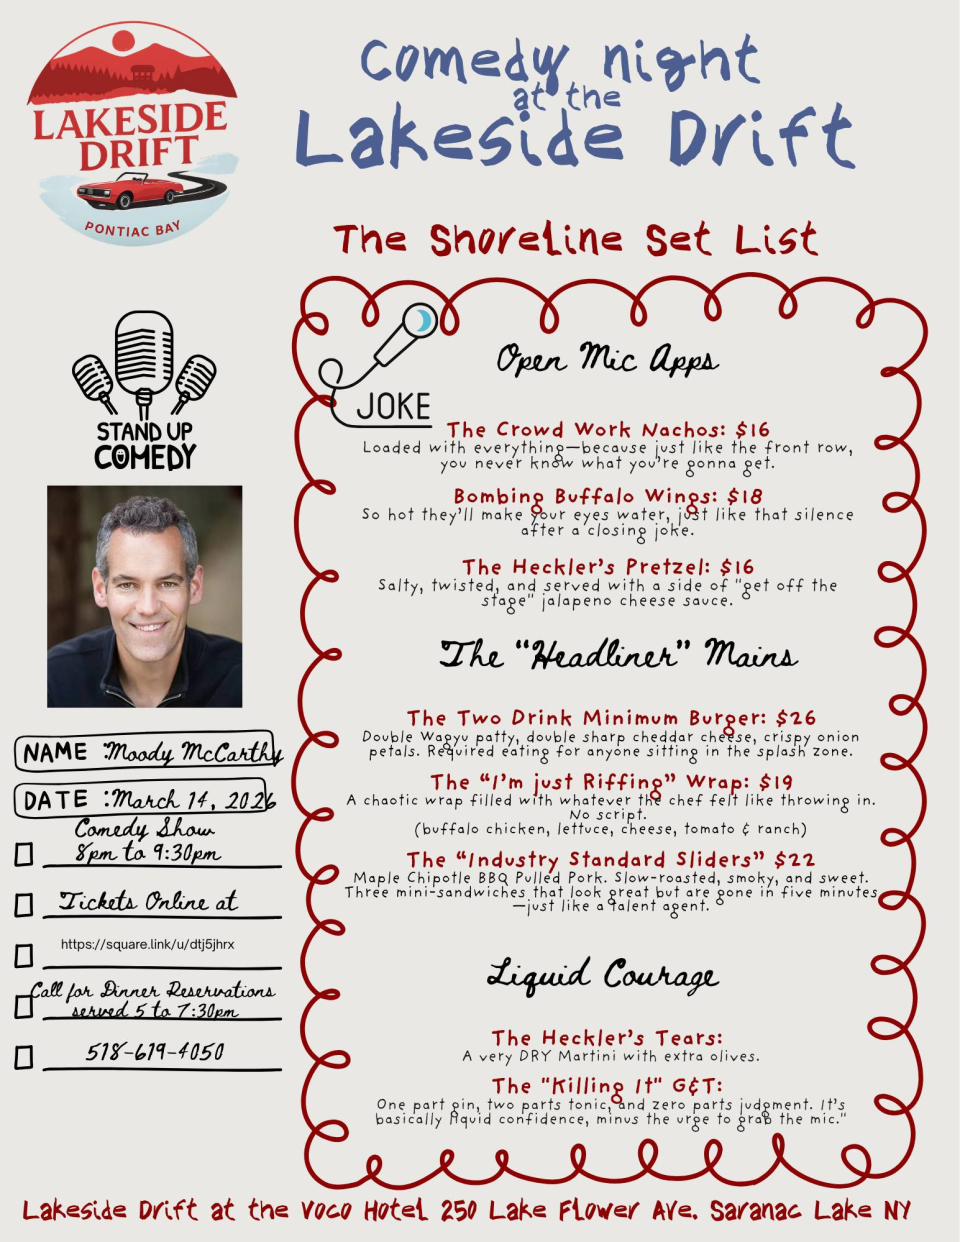 LAKESIDE
DRIFT
PONTIAC BAY
Comedy night
at the
Lakeside Drift
The Shoreline Set List
STAND UP
COMEDY
NAME :Moody McCarthy
DATE :March 14, 2026
Comedy Show
8pm to 9:30pm
Tickets Online at
https://square.link/u/dtj5jhrx
Call for Dinner Reservations
served 5 to 7:30pm
518-619-4050
JOKE
Open Mic Apps
The Crowd Work Nachos: $16
Loaded with everything—because just like the front row,
you never know what you're gonna get.
Bombing Buffalo Wings: $18
So hot they'll make your eyes water, just like that silence
after a closing joke.
The Heckler's Pretzel: $16
Salty, twisted, and served with a side of "get off the
stage" jalapeno cheese sauce.
The “Headliner” Mains
The Two Drink Minimum Burger: $26
Double Wagyu patty, double sharp cheddar cheese, crispy onion
petals. Required eating for anyone sitting in the splash zone.
The “I'm just Riffing” Wrap: $19
A chaotic wrap filled with whatever the chef felt like throwing in.
No script.
(buffalo chicken, lettuce, cheese, tomato & ranch)
The “Industry Standard Sliders” $22
Maple Chipotle BBQ Pulled Pork. Slow-roasted, smoky, and sweet.
Three mini-sandwiches that look great but are gone in five minutes
—just like a talent agent.
Liquid Courage
The Heckler's Tears:
A very DRY Martini with extra olives.
The "Killing It" G&T:
One part gin, two parts tonic, and zero parts judgment. It's
basically liquid confidence, minus the urge to grab the mic."
Lakeside Drift at the Voco Hotel 250 Lake Flower Ave. Saranac Lake NY